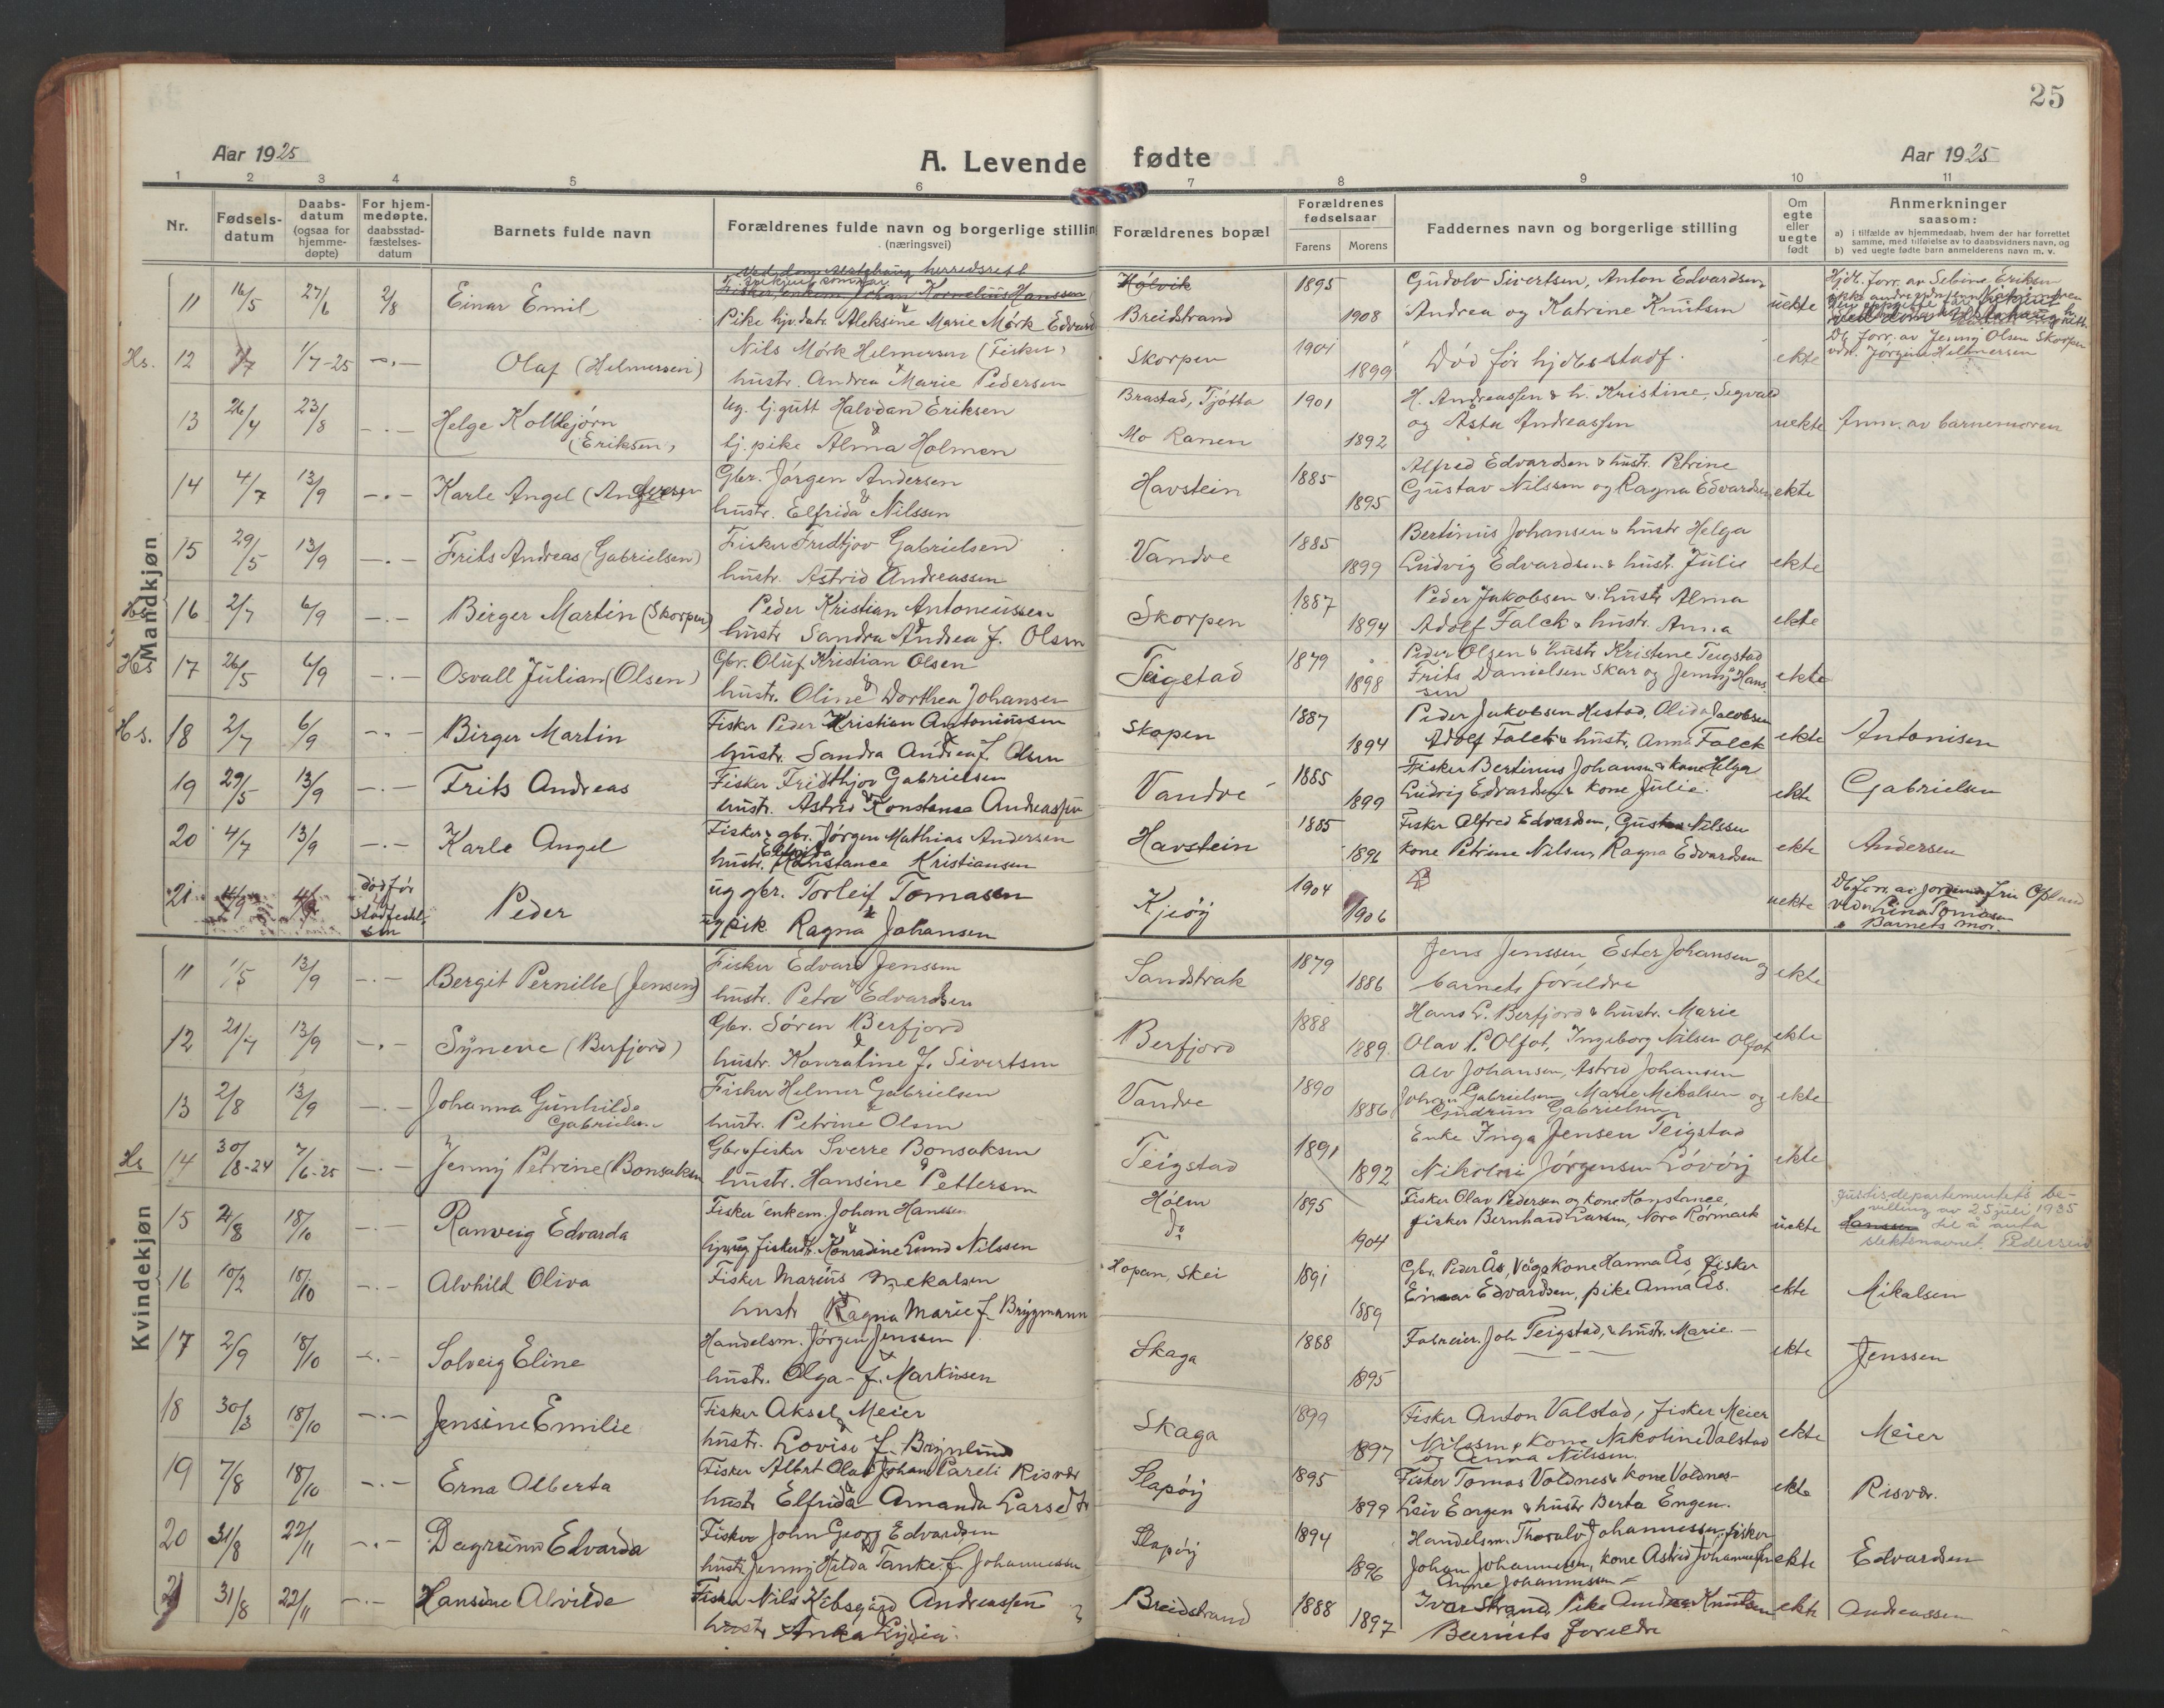 25
Aar 1925
A. Levende fødte
Aar 1925
1 2 3 4 5 6 7 8 9 10 11
Nr.
Fødsels-
datum
Daabs-
datum
(ogsaa for
hjemme-
døpte)
For hjem-
medøpte.
daabsstad-
fæstelses-
datum
Barnets fulde navn
Forældrenes fulde navn og borgerlige stillin
(næringsvei)
Forældrenes bopæl
Forældrenes
fødselsaar
Farens Morens
Faddernes navn og borgerlige stilling
Om
egte
eller
uegte
født
Anmerkninger
saasom:
a) i tilfælde av hjemmedaab, hvem der har forrettet
samme, med tilføielse av to daabsvidners navn, og
b) ved uegte fødte barn anmelderens navn m. v.
Mandkjøn
11 16/5 27/6 2/8 Einar Emil
Fisker enkem Johan Kornelius Hanssen
Pike hjv. datr. Aleksine Marie Mørk Edvard
Hølvik
Breidstrand
1895
1908
Gudolv Sivertsen, Anton Edvardsen
Andrea og Katrine Knutsen
uekte
Hjdb. forr. av Sebine Eriksen
Hs. 12 1/7 1/7-25 -.- Olaf (Helmersen)
Nils Mørk Helmersen (Fisker)
hustr. Andrea Marie Pedersen
Skorpen
1901
1899
Død før hjdbs stadf.
ekte
Db. forr. av Jenny Olsen Skorpen
vdn. Jørgine Helmersen
13 26/4 23/8 -.- Helge Kolbjørn
(Eriksen)
Ug. tj. gutt Halvdan Eriksen
tj. pike Alma Holmen
Brastad, Tjøtta
Mo Ranen
1901
1892
H. Andreassen & h. Kristine, Sigvald
og Asta Andreassen
uekte
Anm. av barnemoren
14 4/7 13/9 -.- Karle Angel (Andersen
Gbr. Jørgen Andersen
hustr. Elfrida Nilssen
Havstein
1885
1895
Alfred Edvardsen & hustr. Petrine
Gustav Nilssen og Ragna Edvardsen
ekte
15 29/5 13/9 -.- Frits Andreas (Gabrielsen)
Fisker Fridtjov Gabrielsen
hustr. Astrid Andreassen
Vandve
1885
1899
Bertinius Johansen & hustr Helga
Ludvig Edvardsen & hustr. Julie
ekte
Hs 16 2/7 6/9 -.- Birger Martin (Skorpen)
Peder Kristian Antoniussen
hustr Sandra Andrea f. Olsen
Skorpen
1887
1894
Peder Jakobsen & hustr Alma
Adolf Falck & hustr. Anna
ekte
Hs 17 26/5 6/9 -.- Osvall Julian (Olsen)
Gbr. Oluf Kristian Olsen
hustr. Oline Dorthea Johansen
Teigstad
1879
1898
Peder Olsen & hustr Kristine Teigstad
Frits Danielsen Skar og Jenny Hans
sen
ekte
Hs. 18 2/7 6/9 -.- Birger Martin
Fisker Peder Kristian Antoniussen
hustr. Sandra Andrea f. Olsen
Skopen
1887
1894
Peder Jakobsen Hestad, Olida Jacobsen
Adolf Falck & hustr, Anna Falck
ekte
Antonisen
19 29/5 13/9 -.- Frits Andreas
Fisker Fridthjov Gabrielsen
hustr. Astrid Konstanse Andreassen
Vandve
1885
1899
Fisker Bertinius Johansen & kone Helga
Ludvig Edvardsen & kone Julie.
ekte
Gabrielsen
20 4/7 13/9 -.- Karle Angel
Fisker & gbr. Jørgen Mathias Andersen
Elfrida
hustr. Konstance Kristiansen
Havstein
1885
1896
Fisker Alfred Edvardsen, Gustav Nilssen
kone Petrine Nilsen, Ragna Edvardsen
ekte
Andersen
21 4/9 4/9 død før
stadfestel-
sen
Peder
ug gbr. Torleif Tomasen
ug pik. Ragna Johansen
Kjeøy
1904
1906
uekte
Barnets mor.
Kvindekjøn
11 1/5 13/9 -.- Bergit Pernille (Jensen)
Fisker Edvard Jenssen
hustr. Petra Edvardsen
Sandstrak
1879
1886
Jens Jenssen Ester Johansen og
barnets foreldre
ekte
12 21/7 13/9 -.- Synøve (Berfjord)
Gbr. Søren Berfjord
hustr. Konradine J. Sivertsen
Berfjord
1888
1889
Hans L. Berfjord & hustr. Marie
Olav P. Olfot, Ingeborg Nilsen Olfot
ekte
13 2/8 13/9 -.- Johanna Gunhilde
Gabrielsen
Fisker Helmer Gabrielsen
hustr. Petrine Olsen
Vandve
1890
1886
Alv Johansen, Astrid Johansen
Johan Gabrielsen, Marie Mikalsen og
Gudrun Gabrielsen
ekte
Hs 14 30/8-24 7/6-25 -.- Jenny Petrine (Bonsaksen
Gbr & fisker Sverre Bonsaksen
hustr. Hansine Pettersen
Teigstad
1891
1892
Enke Inga Jensen Teigstad
Nikolai Jørgensen Løvøy
ekte
15 21/8 18/10 -.- Ranveig Edvarda
Fisker enkem. Johan Hanssen
Konradine Lund Nilssen
Holm
do
1895
1904
Fisker Olav Pedersen og kone Konstance,
fisker Bernhard Larsen, Nora Rørmark
uekte
Justisdepartementets be-
villing av 25 juli 1935
Hanssen til å anta
slektsnavnet Pedersen
16 10/2 18/10 -.- Alvhild Oliva
Fisker Marius Mekalsen
hustr Ragna Marie f. Brygmann
Hopen, Skei
1891
1889
Gbr. Peder Ås, Vega kone Hanna Ås, fisker
Einar Edvardsen, pike Anna Ås.
ekte
Mikalsen
17 2/9 18/10 -.- Solveig Eline
Handelsm. Jørgen Jenssen
hustr. Olga f. Markusen
Skaga
1888
1895
Joh Teigstad, & hustr. Marie.
ekte
Jenssen
18 30/3 18/10 -.- Jensine Emilie
Fisker Aksel Meier
hustr. Lovise f. Brynlund
Skaga
1899
1897
Fisker Anton Valstad, fisker Meier
Nilssen, kone Nikoline Valstad
og Anna Nilssen.
ekte
Meier
19 7/8 18/10 -.- Erna Alberta
Fisker Albert Olai Johan Pareli Risvær
hustr Elfrida Amanda Larsedtr
Slapøy
1895
1899
Fisker Tomas Voldnes & kone Voldnes-
Leiv Engen & hustr Berta Engen.
ekte
Risvær.
20 31/8 22/11 -.- Dagrunn Edvarda
Fisker John Georg Edvardsen
hustr Jenny Hilda Tanke f. Johannessen
Slapøy
1894
1896
Handelsm. Thoralv Johannessen, fisker
Johan Johannessen, kone Astrid Johannessen
Anne Johannessen
ekte
Edvardsen
21 31/8 22/11 -.- Hansine Alvilde
Fisker Nils Kibsgård Andreassen
hustr Anka Lydia
Breidstrand
1888
1897
Ivar Strand, Pike Andrea Knutsen
Barnets foreldre
ekte
Andreassen